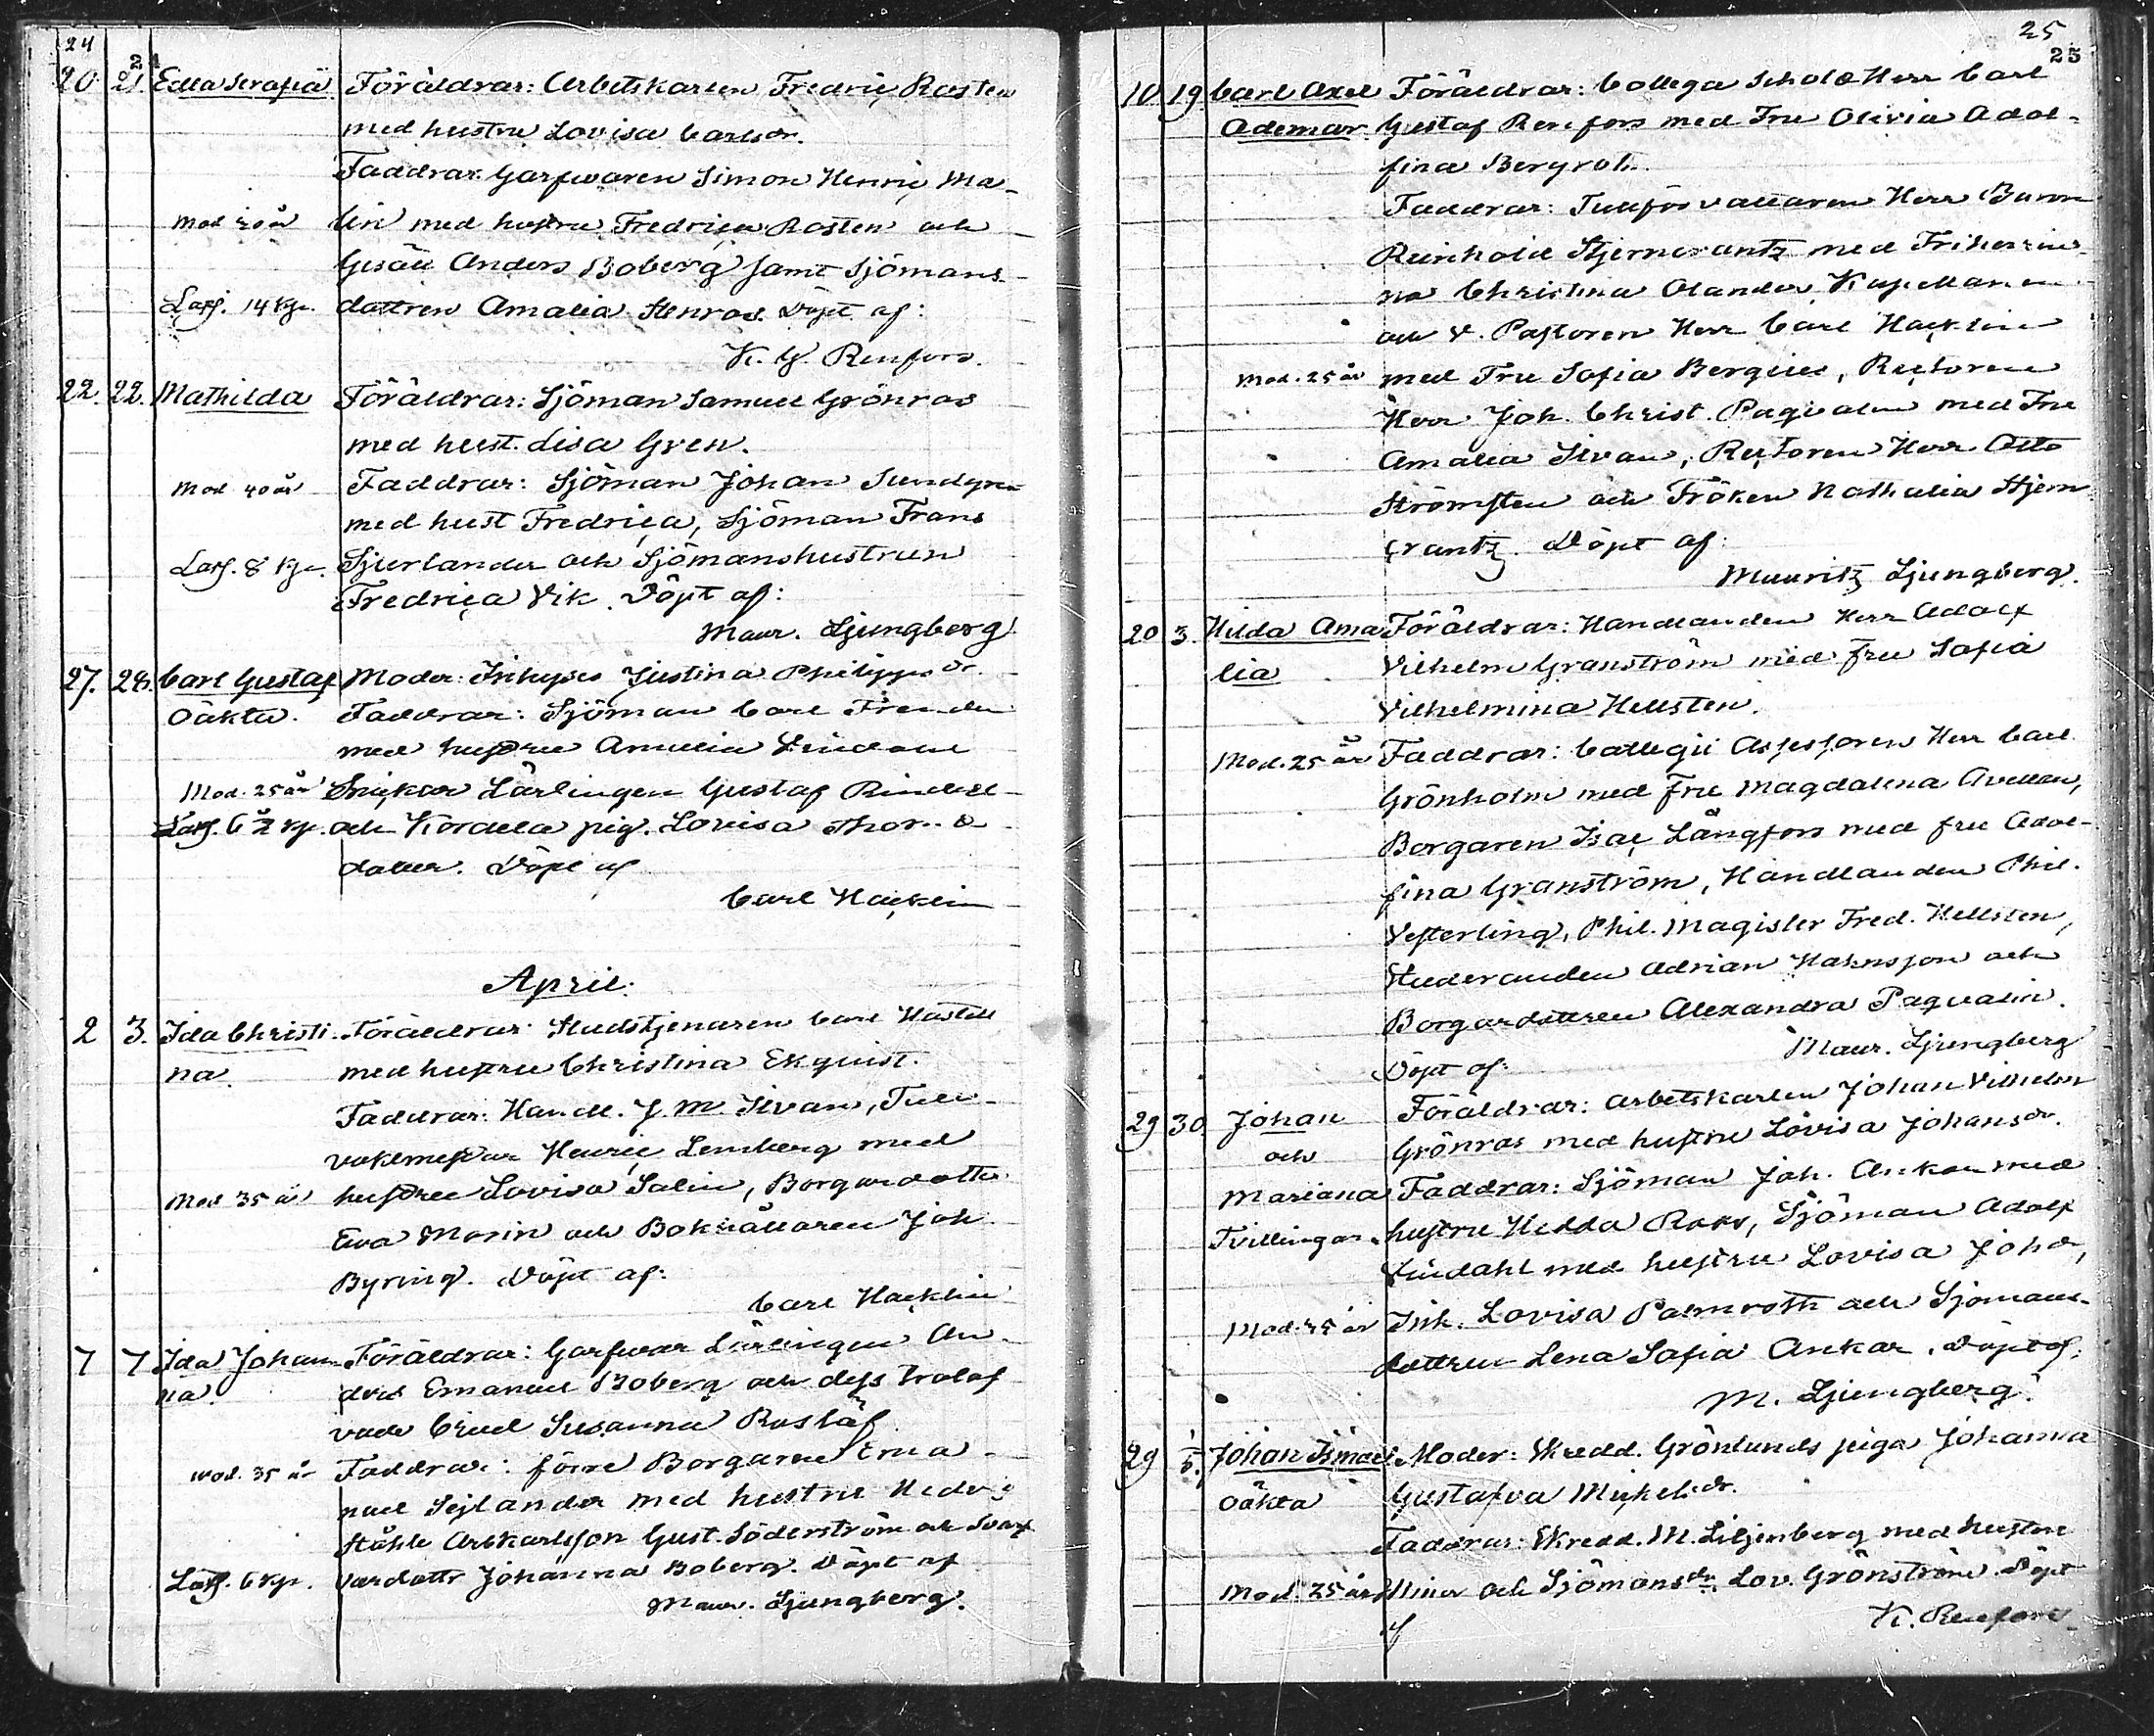 24
20. 21. Edla Serafia Föräldrar: Arbetskarlen Fredric Rosten
med hustru Lovisa Carlsdr.
Faddrar: Garfvaren Simon Henric Ma-
Mod 20 år lin med hustru Fredrica Rosten och
Gesäll Anders Boberg samt Sjömans-
Lasf. 14 Kp. dottren Amalia Stenros. Döpt af:
K. G. Renfors.
22. 22. Mathilda Föräldrar: Sjöman Samuel Grönroos
med hust. Lisa Gren.
Mod 40 år Faddrar: Sjöman Johan Sundgren
med hust Fredrica, Sjöman Frans
Lasf. 8 Kp. och Sjömanshustrun
Fredrica Vik. Döpt af:
Maur. Ljungberg
27. 28. Carl Gustaf Moder: Inhyses Justina Philippsdr.
Oäkta. Faddrar: Sjöman Carl
med hustru Amalia Lindom
Mod. 25 år Snickar Lärlingen Gustaf
Lasf. 6 ½ Kp. och pig. Lovisa
dotter. Döpt af
Carl Hacklin
April.
2 3. Ida Christi- Föräldrar: Stadstjenaren Carl
na. med hustru Christina Ekquist.
Faddrar: Handl. J. M. Sivan, Tull-
vaktmestar Henric Lemberg med
Mod 35 år hustru Lovisa Salin, Borgaredottr
Eva Morin och Bokhållaren Joh
Byring. Döpt af:
Carl Hacklin
7 7 Ida Johan- Föräldrar: Garfvar Lärlingen An-
na. ders Emanuel Boberg och dess trolof
vade Susanna
Mod. 35 år Faddrar: förre Borgaren Ema-
nuel Sejlander med hustru Hedvig
Ståhle Arbkarlsson Gust. Söderström och
Lasf. 6 Kp. vardottr Johanna Boberg. Döpt af
Maur. Ljungberg.
25
25
10 19. Carl Axel Föräldrar: Collega Scholæ Herr Carl
Ademar Gustaf Renfors med Fru Olivia Adol-
fina Bergroth.
Faddrar: Tullförvaltaren Herr Baron
Reinhold Stjerncrantz med Friherrin-
na Christina Olander, Kapellanen
och V. Pastoren Herr Carl Hacklin
Mod. 25 år med Fru Sofia Bergius, Rectoren
Herr Joh. Christ. Paqvalin med Fru
Amalia Sivan, Rectoren Herr Otto
Strömsten och Fröken Nathalia Stjern
crantz. Döpt af:
Mauritz Ljungberg.
20 3. Hilda Ama- Föräldrar: Handlanden Herr Adolf
lia Vilhelm Granström med fru Sofia
Vilhelmina Hellsten.
Mod. 25 år Faddrar: Collegii Assessoren Herr Carl
Grönholm med Fru Magdalena Avellan,
Borgaren Isac Långfors med fru Adol-
fina Granström, Handlanden Phil.
Vesterling, Phil. Magister Fred. Hellsten,
Studeranden Adrian Hahnsson och
Borgardottren Alexandra Paqvalin.
Döpt af: Maur. Ljungberg
29 30. Johan Föräldrar: Arbetskarlen Johan Vilhelm
och Grönroos med hustru Lovisa Johansdr.
Mariana Faddrar: Sjöman Joh. Ankar med
Tvillingar. hustru Hedda Roos, Sjöman Adolf
Lindahl med hustru Lovisa Johdr,
Inh. Lovisa Palmroth och Sjömans-
dottren Lena Sofia Ankar. Döpt af:
M. Ljungberg.
29 1/5. Johan Ismael Moder: Skredd. Grönlunds piga Johanna
Oäkta Gustafva Mickelsdr.
Faddrar: Skredd. M. Liljenberg med hustru
Mod. 25 år Mina och Sjömansdr Lov. Grönström. Döpt
af K. Renfors